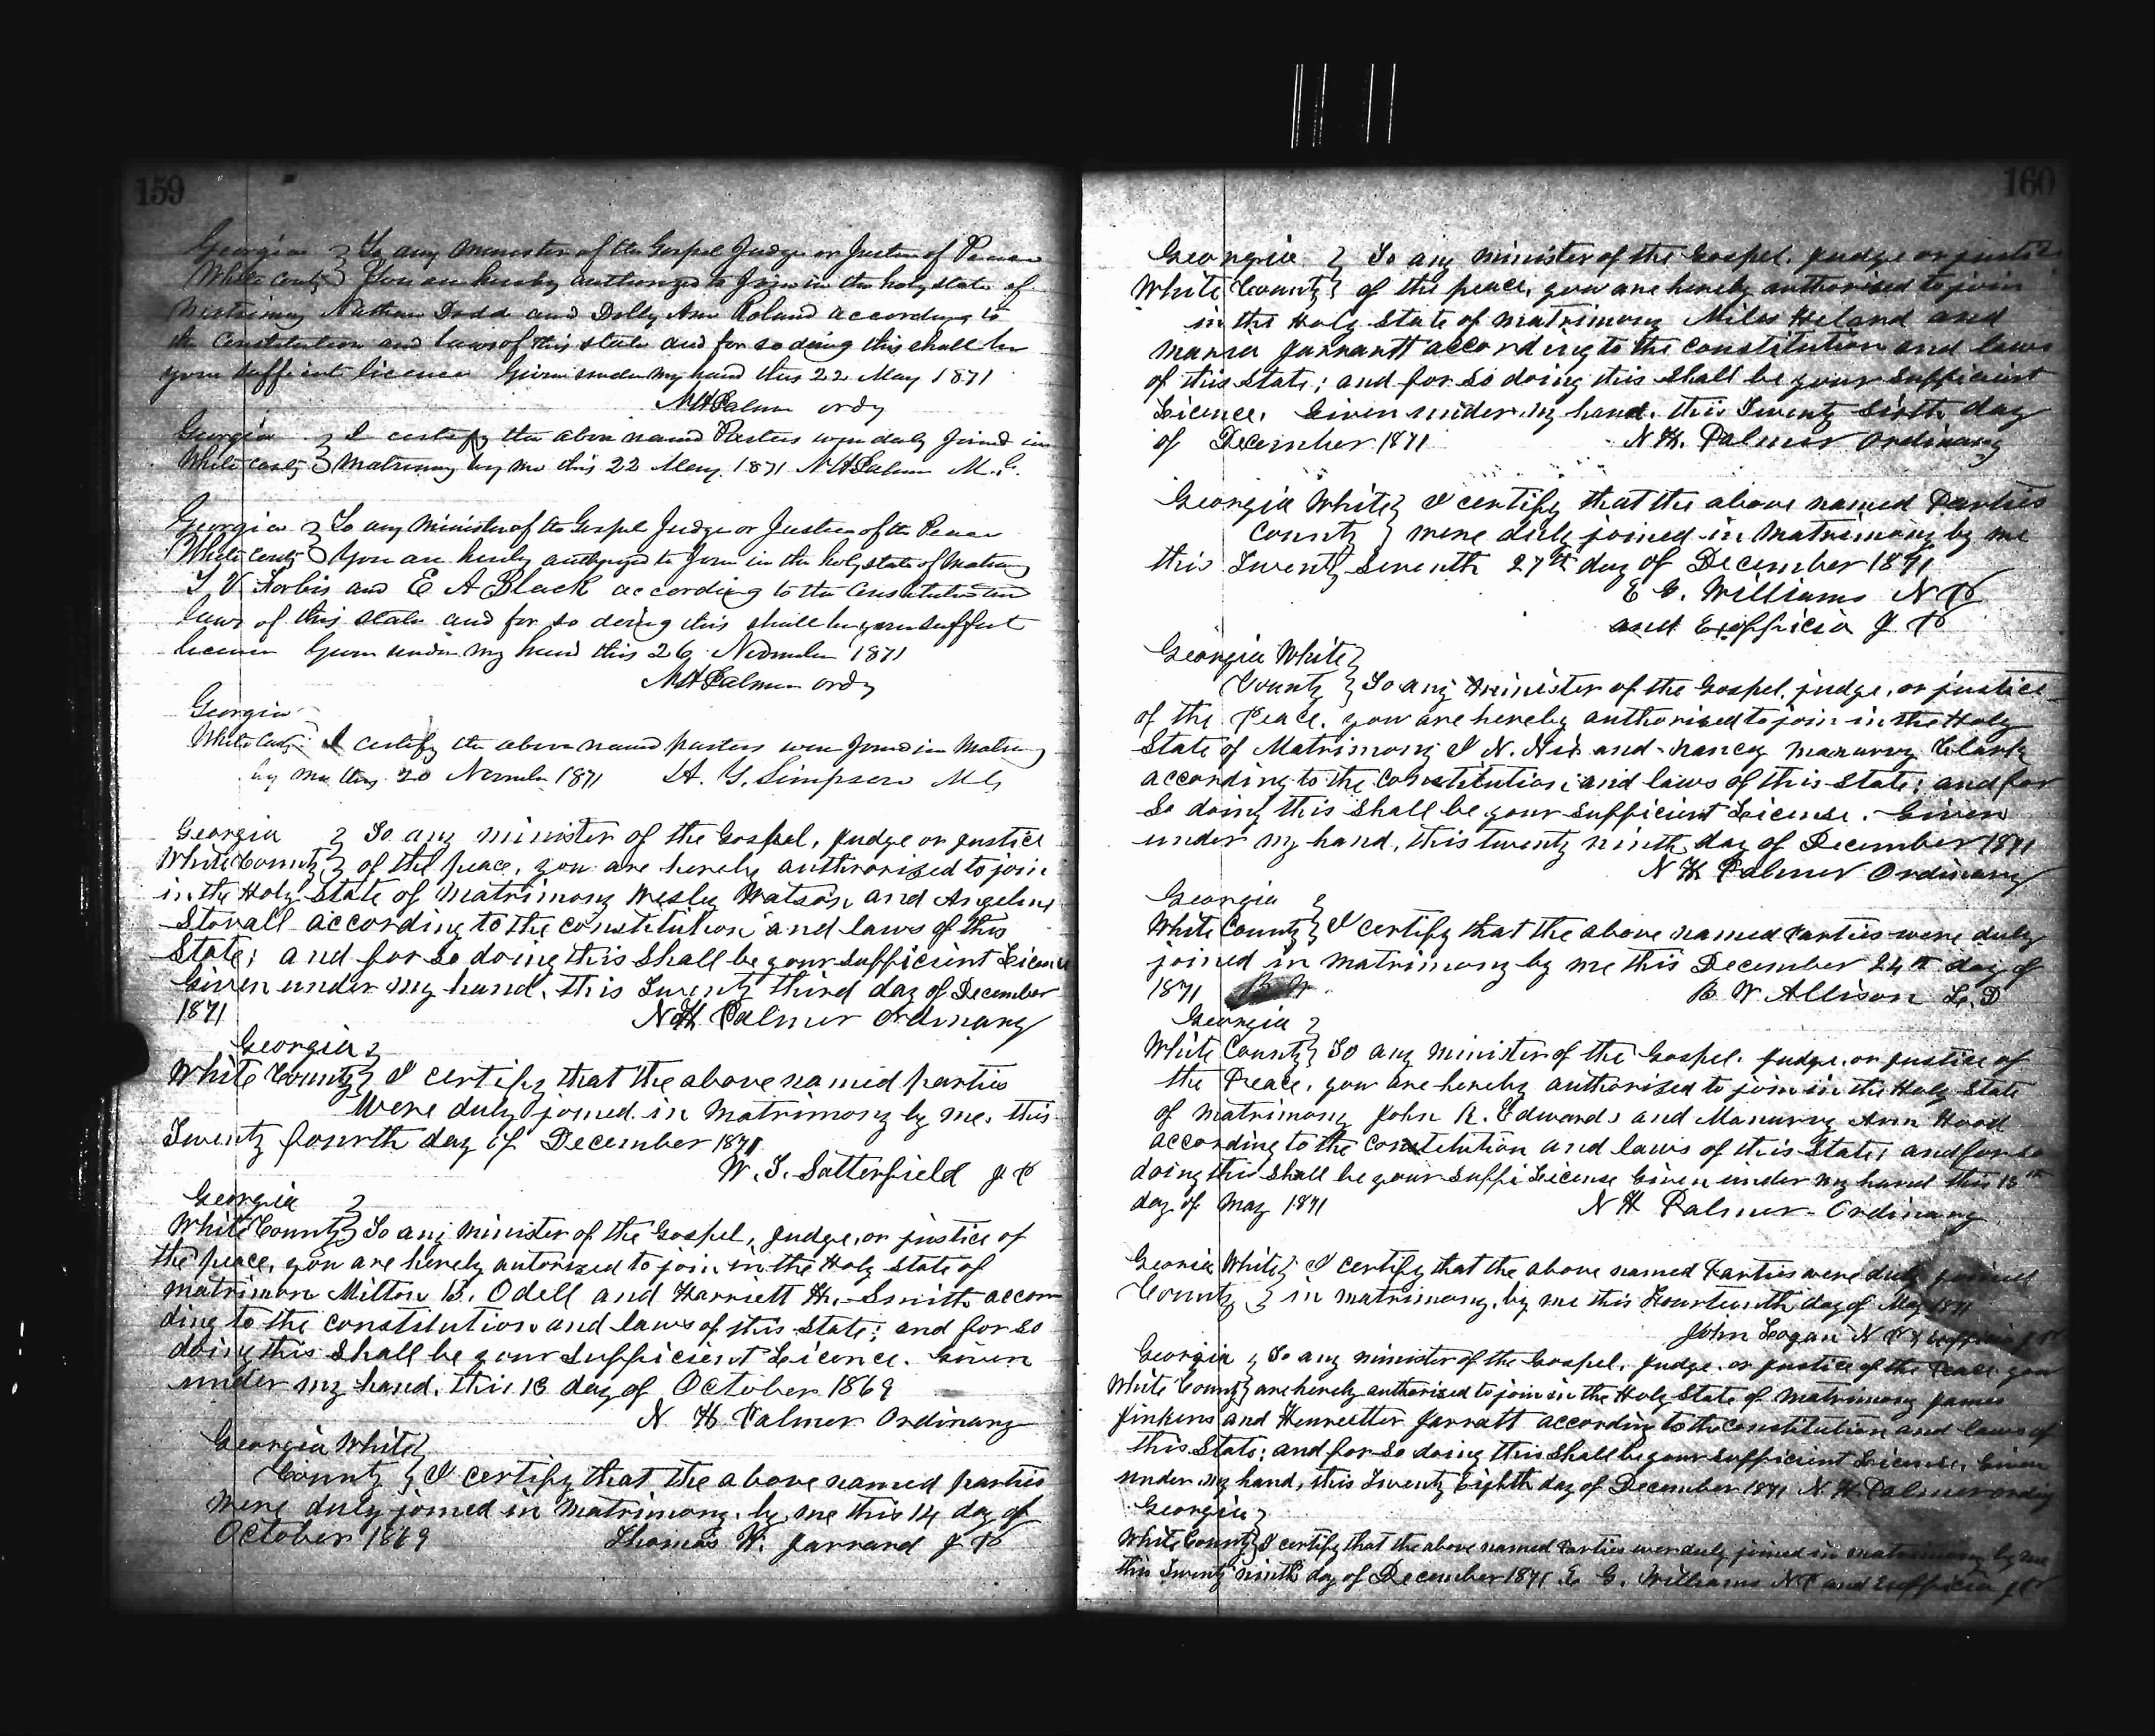 159
Georgia } To any minister of the Gospel Judge or Justice of Peace
White County } You are hereby authorized to Join in the holy state of
Matrimony Nathan Dodd and Dolly Ann Roland according to
the Constitution and laws of this state and for so doing this shall be
your sufficient licence Given under my hand this 22 May 1871
N H Palmer ordy
Georgia } I certify the above named Parties were duly Joined in
White County } matrimony by me this 22 May 1871 N H Palmer M. G.
Georgia } To any Minister of the Gospel Judge or Justice of the Peace
White County } You are hereby authorized to Join in the holy state of Matrimony
Forbis and E A Black according to the Constitution and
laws of this state and for so doing this shall be your suffict
licence Given under my hand this 26 November 1871
N H Palmer ordy
Georgia
White County I certify the above named parties were Joined in Matrimony
by me this 20 November 1871 Simpson M G
Georgia } To any minister of the Gospel, Judge or Justice
White County } of the peace, you are hereby authorised to join
in the Holy State of Matrimony Wesly Watson and Angeline
Stovall according to the constitution and laws of this
State; and for so doing this shall be your sufficient Licence
Given under my hand, this Twenty third day of December
1871 N H Palmer Ordinary
Georgia }
White County } I certify that the above named parties
Were duly joined in matrimony by me, this
Twenty fourth day of December 1871
W. T. Satterfield J P
Georgia }
White County } To any minister of the Gospel, Judge, or justice of
the peace, you are hereby autorized to join in the Holy State of
matrimon Milton B. Odell and Harriett H. Smith accor
ding to the constitution and laws of this State; and for so
doing this shall be your sufficient Licence. Given
under my hand, this 13 day of October 1869
N H Palmer Ordinary
Georgia White }
County } I certify that the above named parties
were duly joined in matrimony, by me this 14 day of
October 1869 Thomas W. Jarrard J P
160
Georgia } To any minister of the Gospel. Judge or justice
White County } of the peace, you are hereby authorised to join
in the Holy State of matrimony Miles Heland and
Maria Jarrantt according to the constitution and laws
of this State; and for so doing this shall be your sufficient
Licence. Given under my hand, this Twenty Sixth day
of December 1871 N H. Palmer Ordinary
Georgia White } I certify that the above named Parties
County } were duly joined in matrimony by me
this Twenty Seventh 27th day of December 1871
E G. Williams N P
and Exofficio J P
Georgia White }
County } To any minister of the Gospel, judge, or justice
of the Peace, you are hereby authorised to join in the Holy
State of Matrimony N. Nix and Nancy Clark
according to the Constitution and laws of this State; and for
So doing this shall be your sufficient License. Given
under my hand, this twenty ninth day of December 1871
N H Palmer Ordinary
Georgia }
White County } I certify that the above named Parties were duly
joined in matrimony by me this December 24th day of
1871 B W Allison L. D
Georgia }
White County } To any minister of the Gospel. Judge, or justice of
the Peace, you are hereby authorised to join in the Holy State
of matrimony John R. Edwards and Manurvy Ann Hood
according to the Constitution and laws of this State; and for so
doing this shall be your suffi License Given under my hand this 13th
day of May 1871 N H Palmer Ordinary
Georia White } I certify that the above named Parties were duly joined
County } in matrimony, by me this Fourteenth day of May 1871
John Logan N P & Exofficio J P
Georgia } To any minister of the Gospel, Judge, or justice of the Peace you
White County } are hereby authorised to join in the Holy State of matrimony James
Jinkens and Henreetter Jarratt according to the constitution and laws of
this State; and for so doing this shall be your sufficient License, Given
under my hand, this Twenty Eighth day of December 1871 N H Palmer ordiny
Georgia }
White County } I certify that the above named Parties wer duly joined in matrimony by me
this Twenty ninth day of December 1871 E G. Williams N P and Exofficio J P